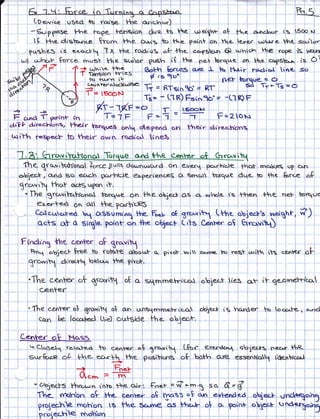 Ex 7.4: Force in Turning a Capstan
Ph 5
(Device used to raise the anchor)
-Suppose the rope tension due to the weight of the anchor is 1500 N.
If the distance from the axis to the point on the lever where the sailor
pushes is exactly 7x the radius of the capstan @ which the rope is
w/ what force must the sailor push if the net torque on the capstan is 0
Which the
Tension tries
to turn it
counterclockwise
T = 1500N
7R
R
F
Both forces are ⊥ to their radial line so
∅ is 90°
net torque = 0
τT = RT sin 90° = RT
so τT + τs = 0
τs = -(7R)F sin 90° = -(7R)F
RT - 7RF = 0
T = 7F
F = T/7 = 1500N/7
F = 210N
F and T point in
diff directions, their torques only depend on their directions
with respect to their own radial lines.
7.3: Gravitational Torque and the Center of Gravity
The gravitational force pulls downward on every particle that makes up an
object, and so each particle experiences a small torque due to the force of
gravity that acts upon it.
•The gravitational torque on the object as a whole is then the net torque
exerted on all the particles
Calculated by assuming the Fnet of gravity (the object's weight, w)
acts at a single point on the object (its Center of Gravity)
Finding the center of gravity
Any object free to rotate about a pivot will come to rest with its center of
gravity directly below the pivot.
•The center of gravity of a symmetrical object lies at it geometrical
center
•The center of gravity of an unsymmetrical object is harder to locate, and
can be located (lie) outside the object.
Center of Mass
↳ Closely related to center of gravity (for everyday objects near the
surface of the earth, the positions of both are essentially identical)
acm = Fnet/m
-Objects thrown into the air: Fnet = w = mg so a = g
The motion of the center of mass of an extended object undergoing
projectile motion is the same as that of a point object undergoing
projectile motion